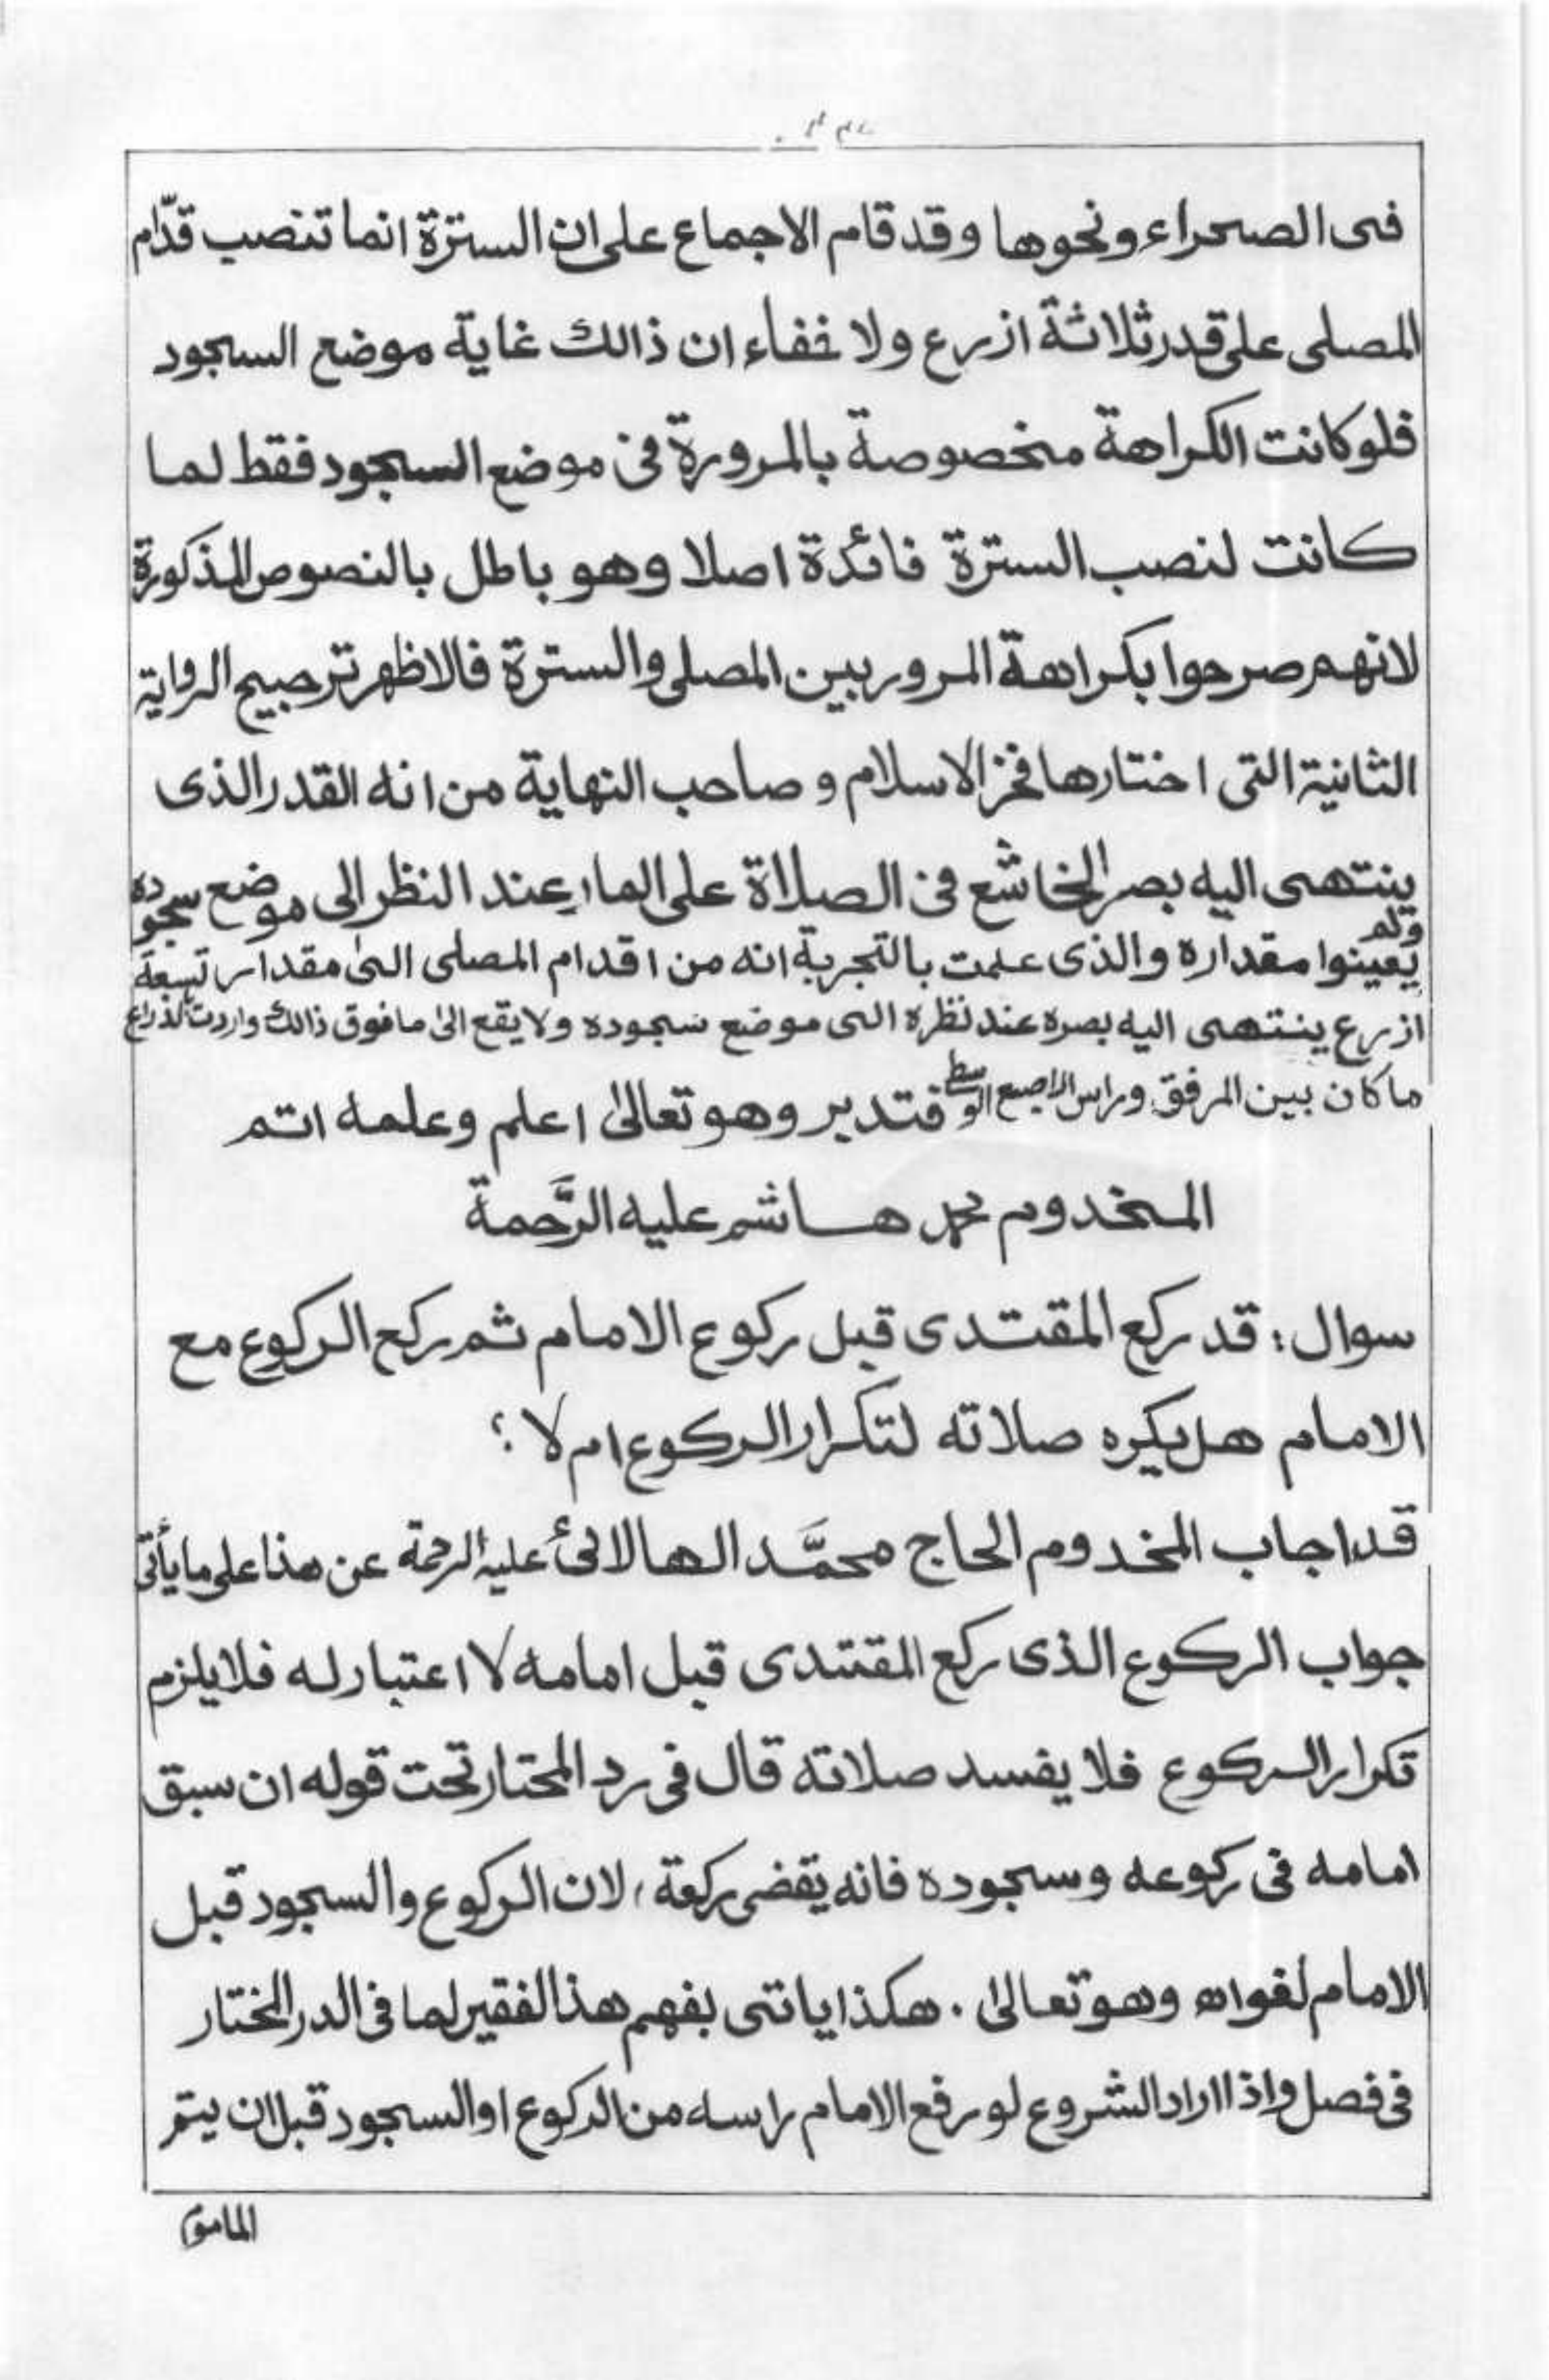 فى الصحراء ونحوها وقد قام الاجماع على ان السترة انما تنصب قدّام
المصلى على قدر ثلاثة ازرع ولا خفاء ان ذالك غاية موضع السجود
فلو كانت الكراهة مخصوصة بالمرورة فى موضع السجود فقط لما
كانت لنصب السترة فائدة اصلا وهو باطل بالنصوص المذكورة
لانهم صرحوا بكراهة المرور بين المصلى والسترة فالاظهر ترجيح الرواية
الثانية التى اختارها فخر الاسلام و صاحب النهاية من انه القدر الذى
ينتهى اليه بصر الخاشع فى الصلاة على المار عند النظر الى موضع سجوده
ولم يعينوا مقداره والذى علمت بالتجربة انه من اقدام المصلى الى مقدار تسعة
ازرع ينتهى اليه بصره عند نظره الى موضع سجوده ولا يقع الى ما فوق ذالك واردت الذراع
ما كان بين المرفق وراس الاصبع الوسطى فتدبر وهو تعالى اعلم وعلمه اتم
المخدوم محمد هاشم عليه الرَّحمة
سوال: قد ركع المقتدى قبل ركوع الامام ثم ركع الركوع مع
الامام هل يكره صلاته لتكرار الركوع ام لا؟
قد اجاب المخدوم الحاج محمَّد الهالائى عليه الرحمة عن هذا على ما يأتى
جواب الركوع الذى ركع المقتدى قبل امامه لا اعتبار له فلا يلزم
تكرار الركوع فلا يفسد صلاته قال فى رد المحتار تحت قوله ان سبق
امامه فى ركوعه وسجوده فانه يقضى ركعة، لان الركوع والسجود قبل
الامام لغو اه وهو تعالى . هكذا ياتى بفهم هذا لفقير لما فى الدر المختار
فى فصل واذا اراد الشروع لو رفع الامام راسه من الركوع او السجود قبل ان يتم
الماموم